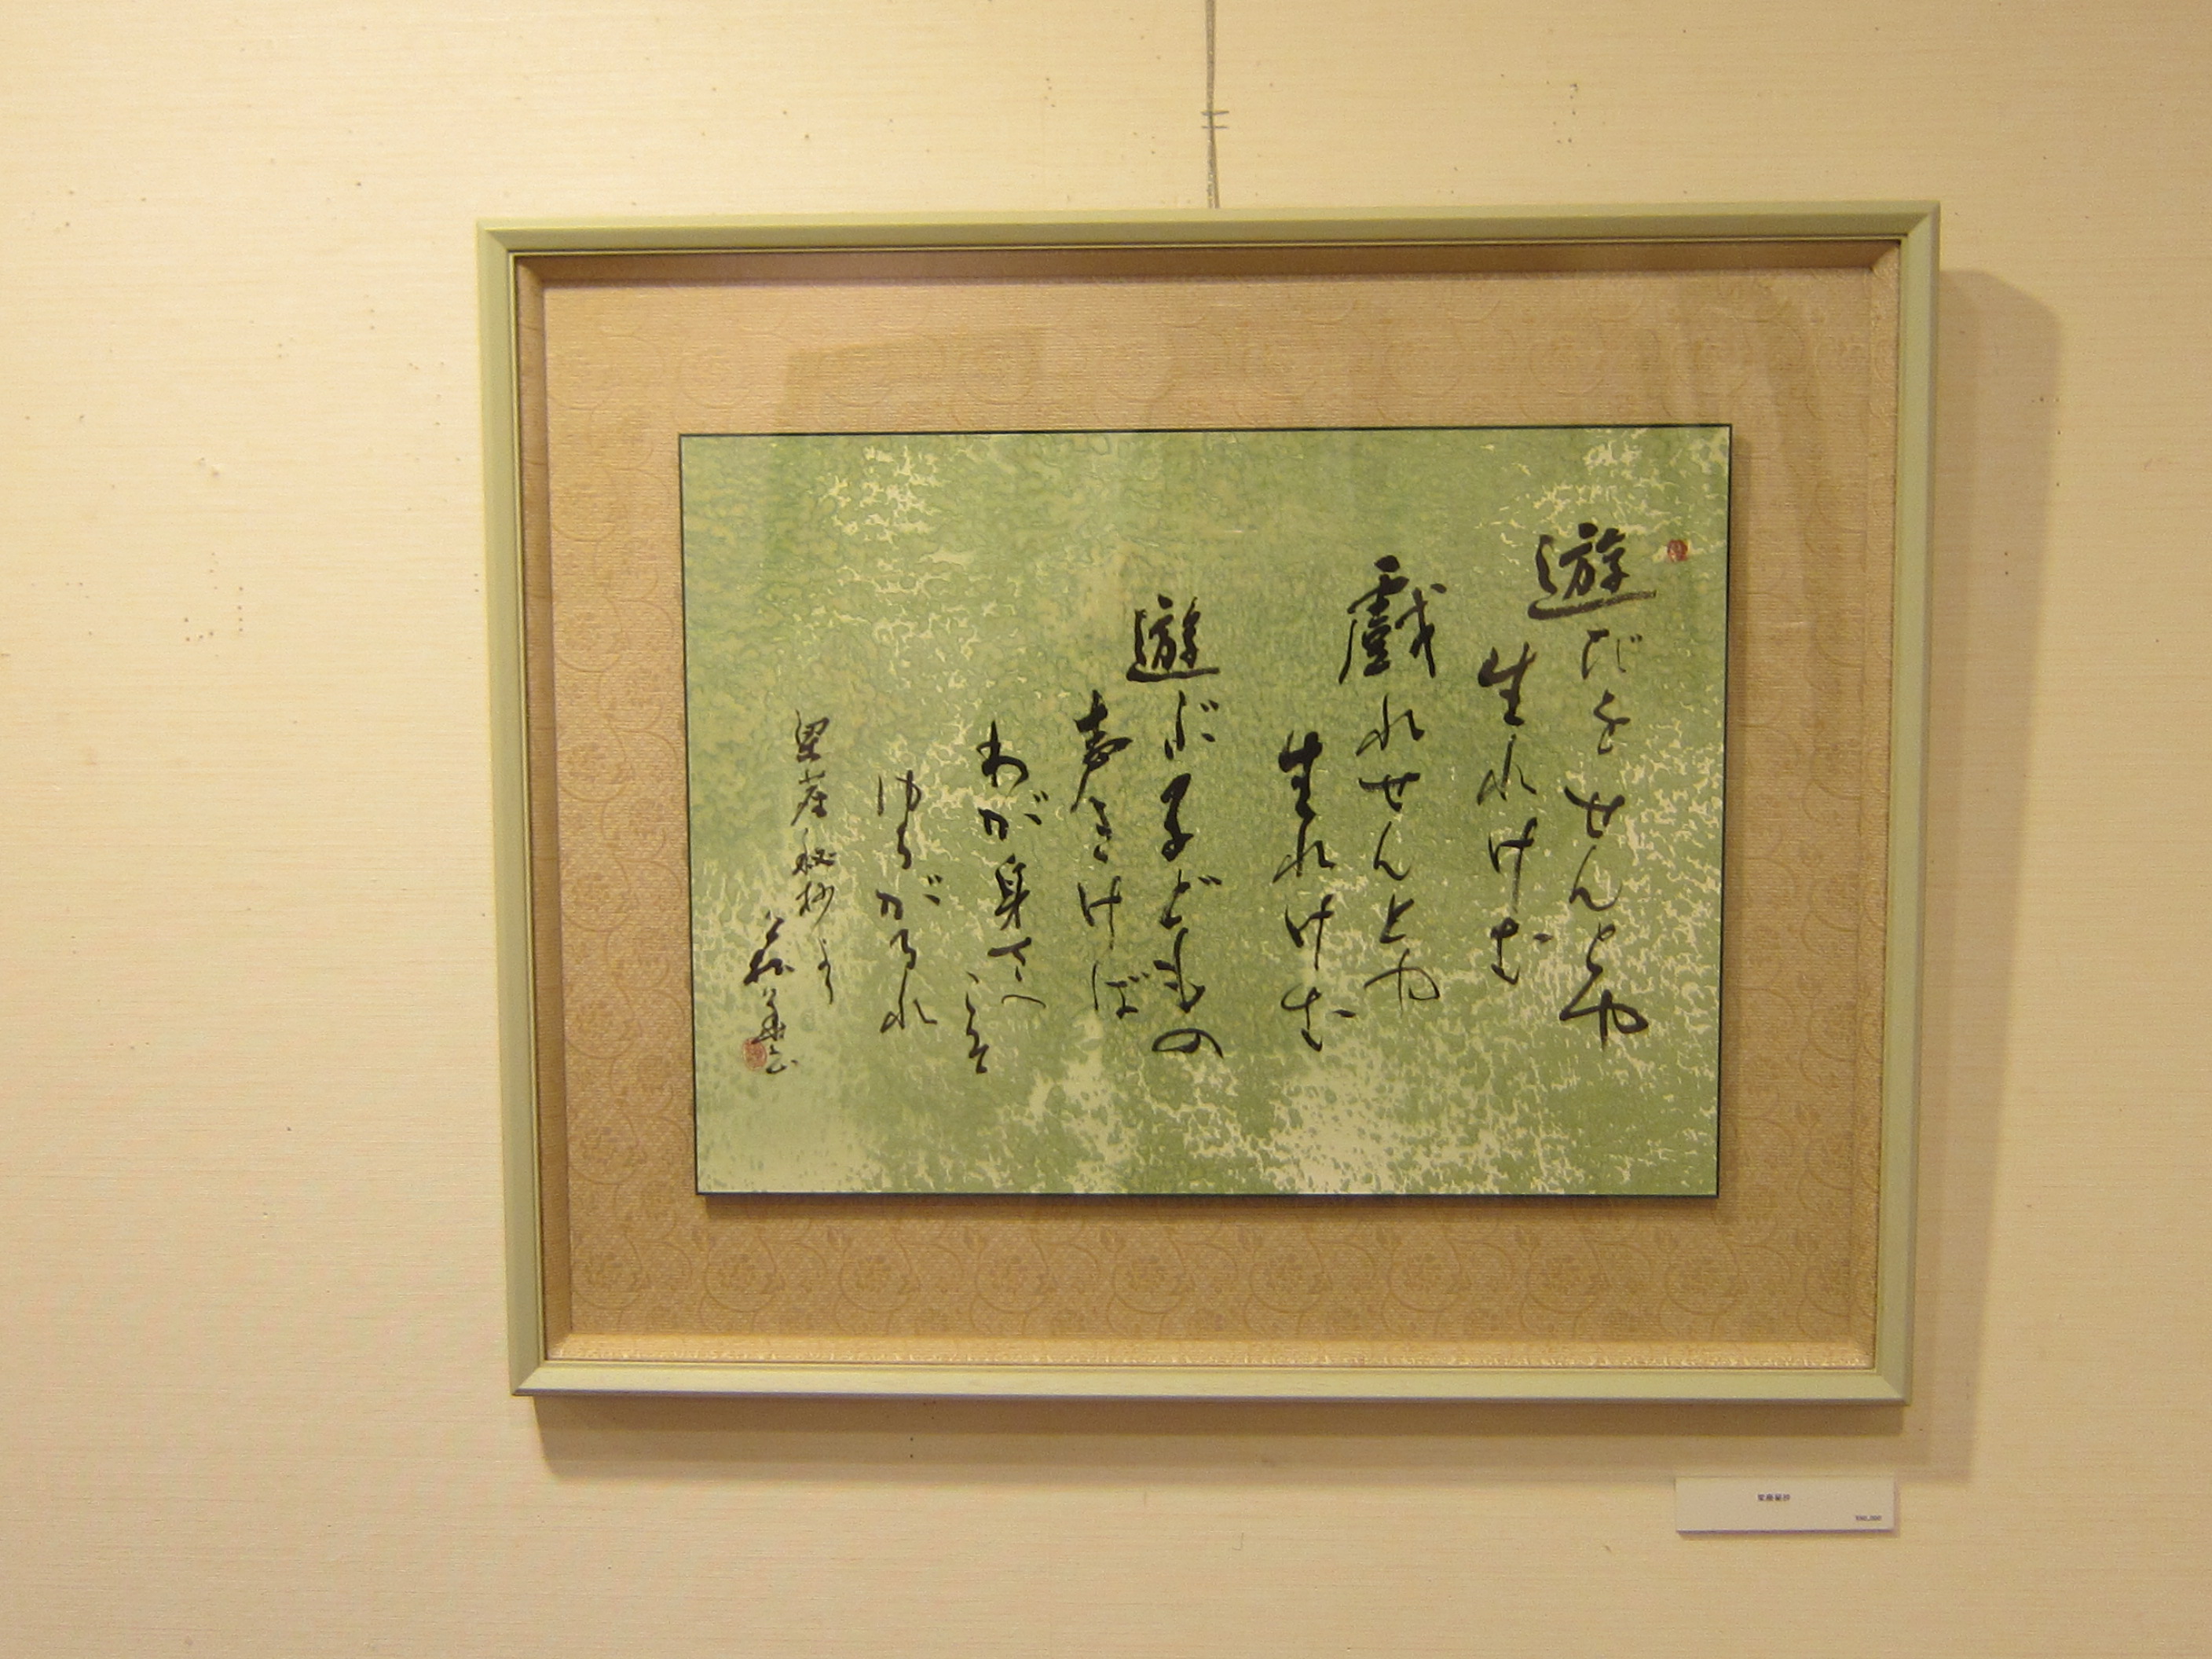 遊びをせんとや
生れけむ
戯れせんとや
生れけむ
遊ぶ子どもの
声きけば
わが身さへ
こそ
ゆるがるれ
梁塵秘抄より
梁塵秘抄